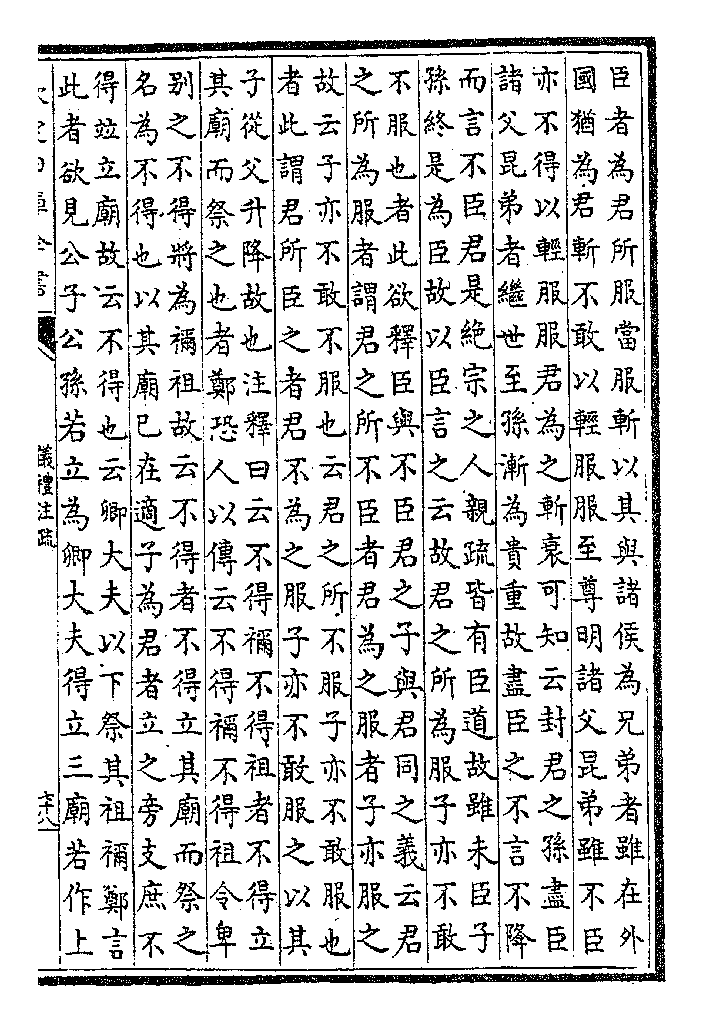 臣者為君所服當服斬以其與諸侯為兄弟者雖在外
國猶為君斬不敢以輕服服至尊明諸父昆弟雖不臣
亦不得以輕服服君為之斬衰可知云封君之孫盡臣
諸父昆弟者繼世至孫漸為貴重故盡臣之不言不降
而言不臣君是絕宗之人親疏皆有臣道故雖未臣子
孫終是為臣故以臣言之云故君之所為服子亦不敢
不服也者此欲釋臣與不臣君之子與君同之義云君
之所為服者謂君之所不臣者君為之服者子亦服之
故云子亦不敢不服也云君之所不服子亦不敢服也
者此謂君所臣之者君不為之服子亦不敢服之以其
子從父升降故也注釋曰云不得禰不得祖者不得立
其廟而祭之也者鄭恐人以傳云不得禰不得祖令卑
別之不得將為禰祖故云不得者不得立其廟而祭之
名為不得也以其廟已在適子為君者立之旁支庶不
得竝立廟故云不得也云卿大夫以下祭其祖禰鄭言
此者欲見公子公孫若立為卿大夫得立三廟若作上
儀禮注疏